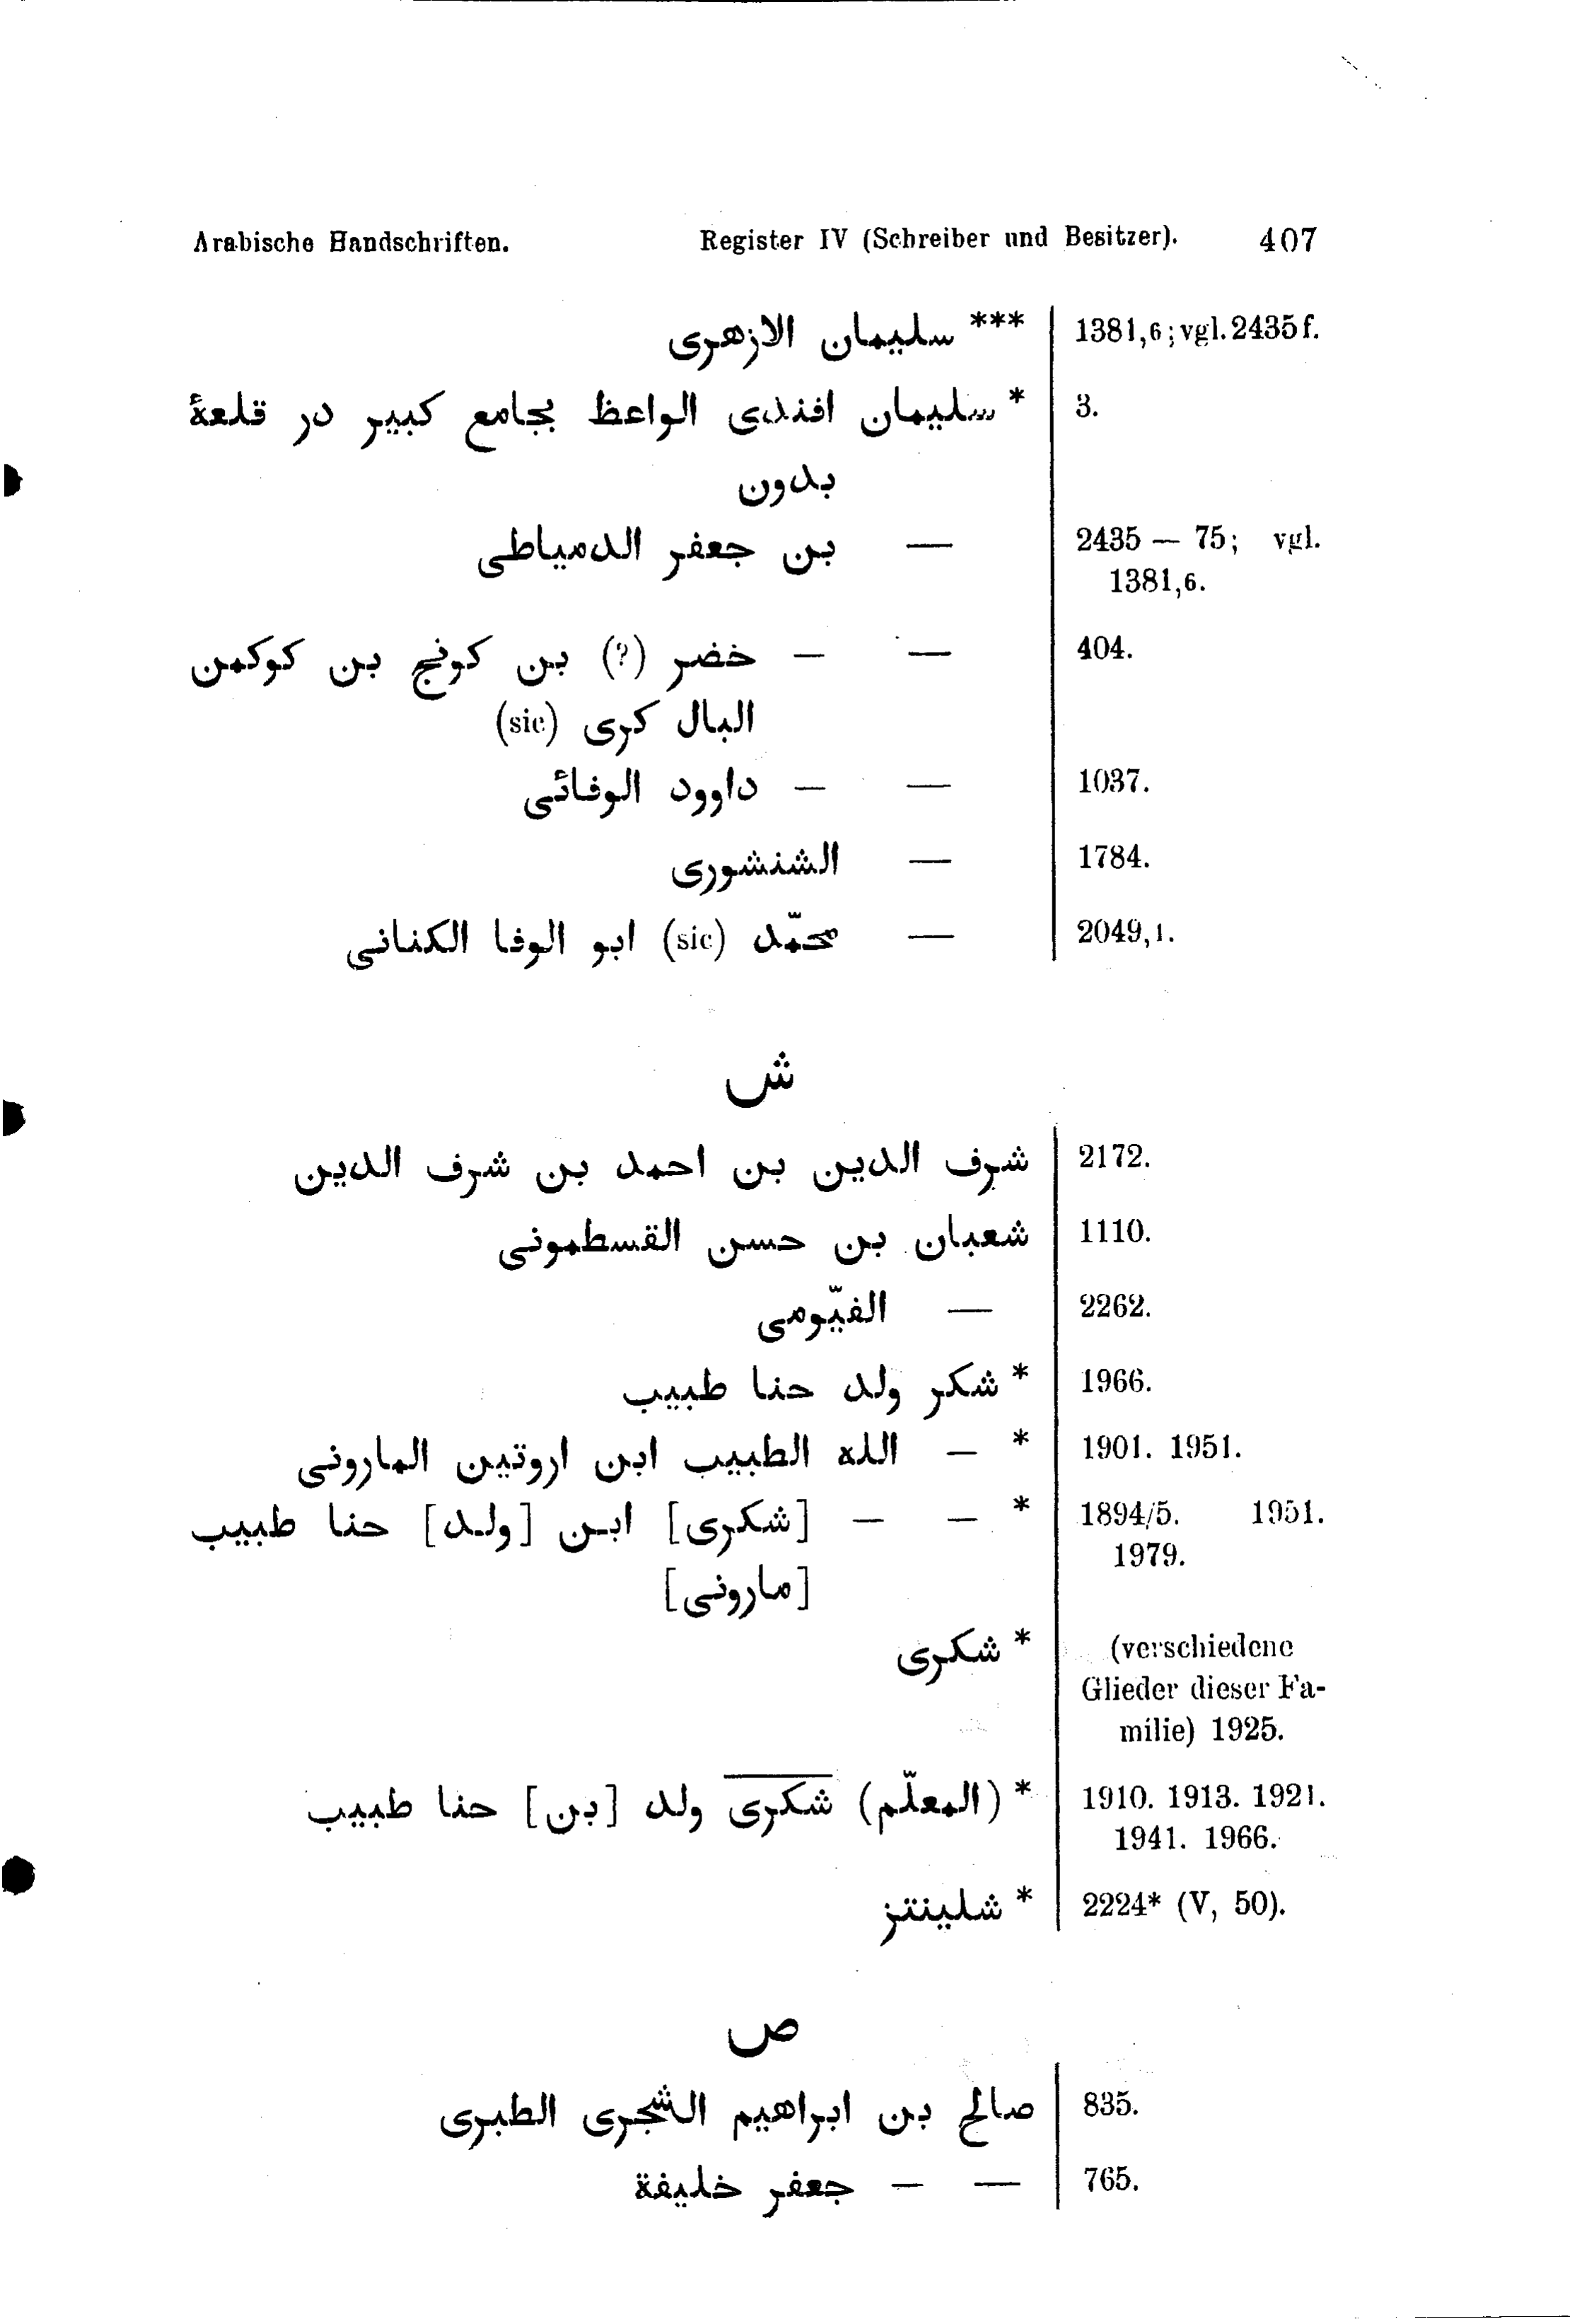 Arabische Handschriften. Register IV (Schreiber und Besitzer). 407
*** سليمان الازهرى 1381,6; vgl. 2435 f.
* سليمان افندى الواعظ بجامع كبير در قلعهٔ 3.
بدون
— بن جعفر الدمياطى 2435 — 75; vgl.
1381,6.
— — خضر (?) بن كونج بن كوكمن 404.
البال كرى (sic)
— — داوود الوفائى 1037.
— الشنشورى 1784.
— محمّد (sic) ابو الوفا الكنانى 2049,1.
ش
شرف الدين بن احمد بن شرف الدين 2172.
شعبان بن حسن القسطمونى 1110.
— الفيّومى 2262.
* شكر ولد حنا طبيب 1966.
* — الله الطبيب ابن اروتين المارونى 1901. 1951.
* — — [شكرى] ابن [ولد] حنا طبيب 1894/5. 1951.
[مارونى] 1979.
* شكرى (verschiedene
Glieder dieser Fa-
milie) 1925.
* (المعلّم) شكرى ولد [بن] حنا طبيب 1910. 1913. 1921.
1941. 1966.
* شلينتز 2224* (V, 50).
ص
صالح بن ابراهيم الشجرى الطبرى 835.
— — جعفر خليفة 765.